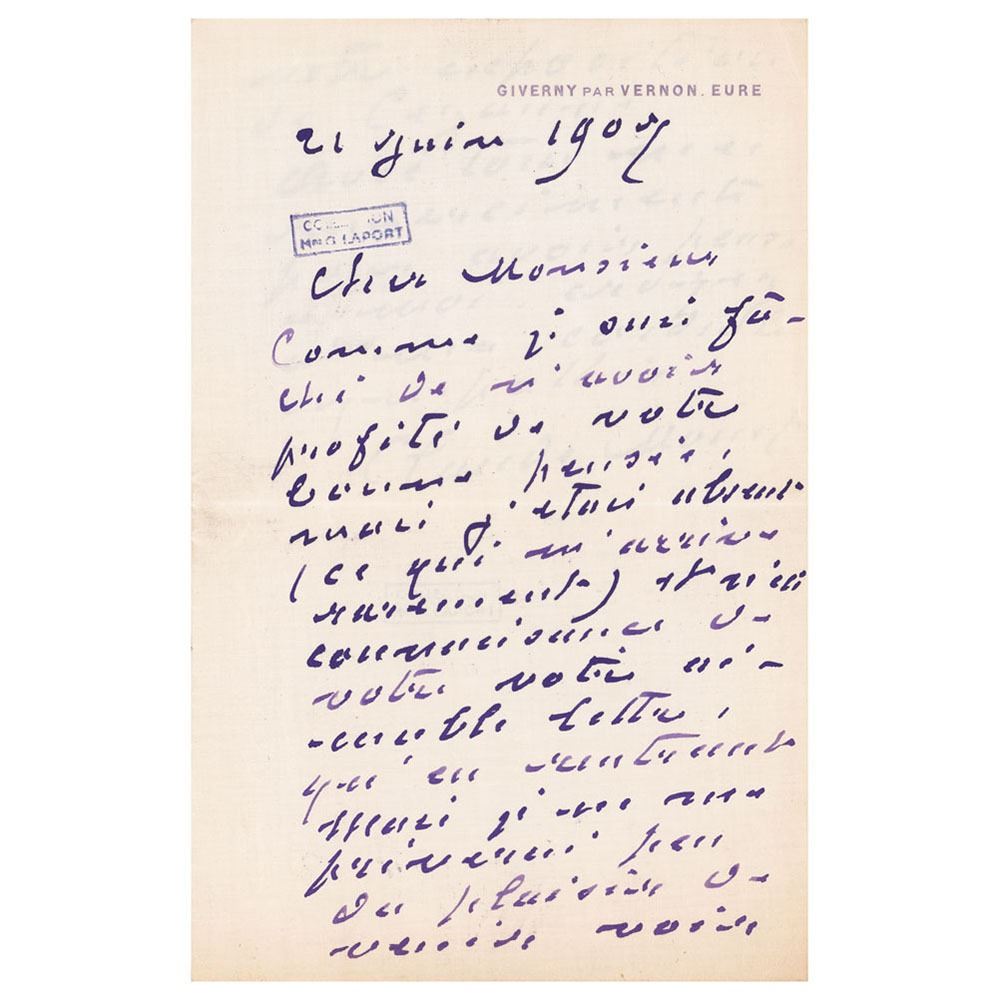 GIVERNY PAR VERNON. EURE
21 Juin 1907
COLLECTION
LAPORT
Cher Monsieur
Comme je suis fâ-
ché de n'avoir
profité de votre
bonne pensée,
mais j'étais absent
(ce qui m'arrive
rarement) et n'ai
connaissance de
votre votre ai-
mable lettre,
qu'en rentrant
Mais je ne me
priverai pas
du plaisir de
venir voir